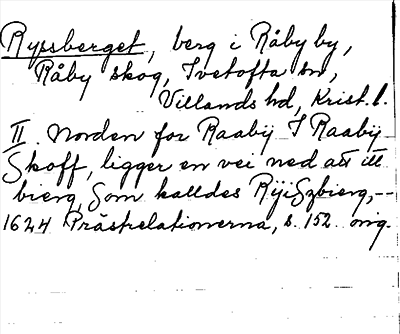 Rysberget, berg i Råby by,
Råby skog, Ivetofta sn,
Villands hd, Krist. l.
II. Norden for Raabÿ I Raabÿ
Skoff, ligger en vei ned att itt
bierg, Som kalldes RÿiSzbierg, --
1624 Prästrelationerna, s. 152 omg.